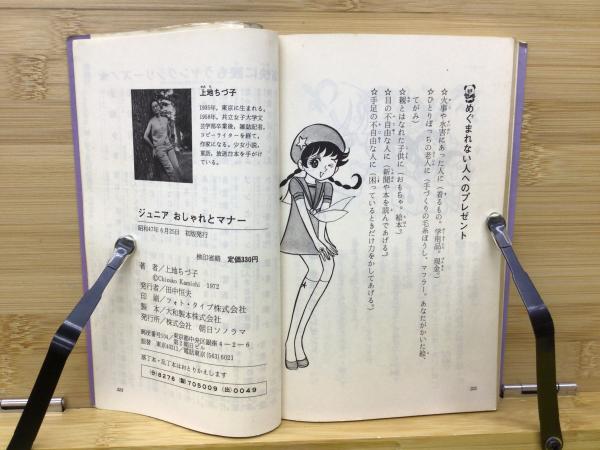 めぐまれない人へのプレゼント
☆火事や水害にあった人に（着るもの。学用品。現金。）
☆ひとりぼっちの老人に（手づくりの毛糸ぼうし、マフラー。あなたがかいた絵、
てがみ）
☆親とはなれた子供に（おもちゃ。絵本）
☆目の不自由な人に（新聞や本を読んであげる。）
☆手足の不自由な人に（困っているときだけ力をかしてあげる。）
上地ちづ子
1935年、東京に生まれる。
1958年、共立女子大学文
芸学部卒業後、雑誌記者、
コピーライターを経て、
作家になる。少女小説、
童話、放送台本を手がけ
ている。
ジュニア おしゃれとマナー
昭和47年6月25日 初版発行
検印省略 定価330円
著者／上地ちづ子
©Chizuko Kamichi 1972
発行者／田中恒夫
印刷／フォト・タイプ株式会社
製本／大和製本株式会社
発行所／株式会社 朝日ソノラマ
郵便番号104／東京都中央区銀座4－2－6
第2朝日ビル
振替 東京40311／電話東京(563)6021
落丁本・乱丁本はおとりかえします
(分)8276 (製)705009 (出)0049